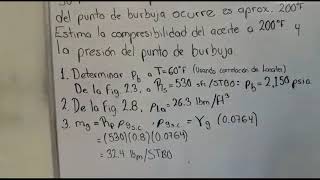 del punto de burbuja ocurre es aprox. 200°F
Estima la compresibilidad del aceite a 200°F y
la presión del punto de burbuja.
1. Determinar Pb a T=60°F (Usando correlación de Lasater)
De la Fig. 2.3, a Rs=530 sft/STBO: Pb=2,150 psia.
2. De la Fig. 2.8, ρla=26.3 lbm/ft³
3. mg=Rp ρgs.c. ρgs.c.=γg (0.0764)
=(530)(0.8)(0.0764)
=32.4 lbm/STBO